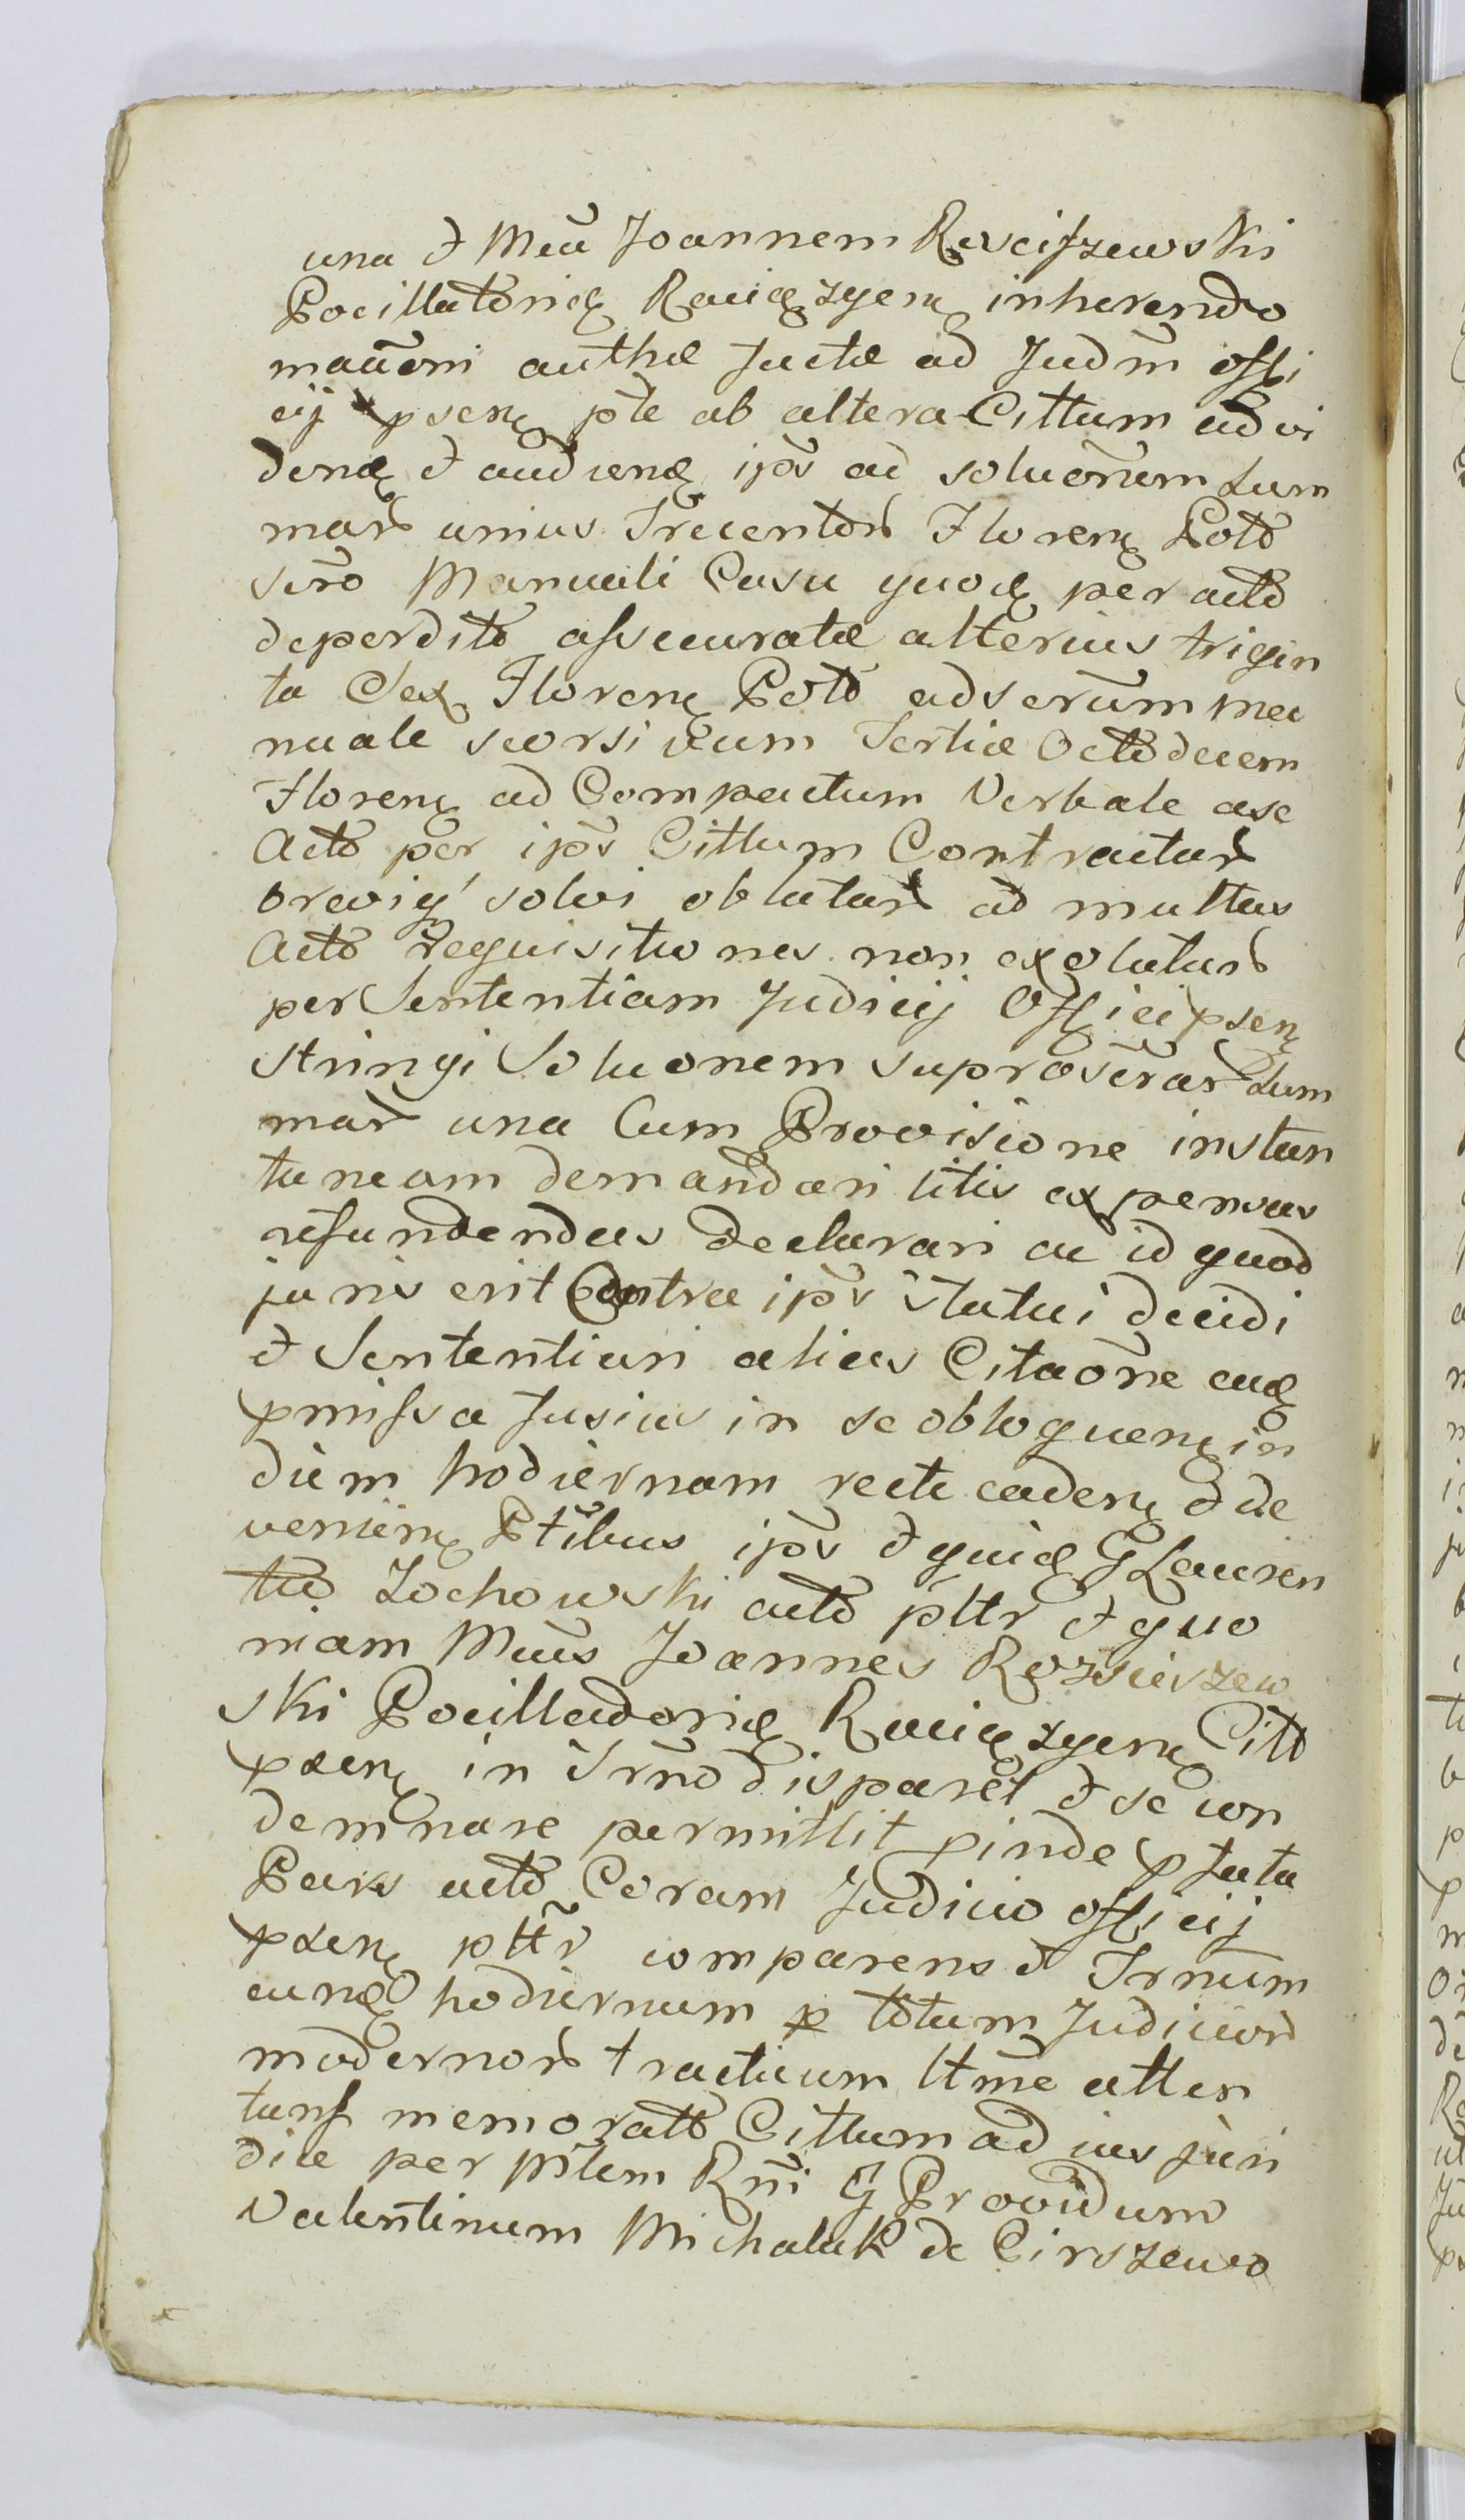 una et Mcum Joannem Rosciszewski
Pocillatorid Raciązyen inherendo
maaoni authae factae ad Judm offi
cij psen pte ab altera Cittum ad vi
dend et audiend ips ad soluōnem sum
mar unius Trecentor Floren Polo
scrō Manuali Casu quod per acto
deperdito assecuratae alterius trigin
ta Sex Floren Polo ad scrum ma
nuale seorsivum Tertiae Octodecem
Floren ad Compactum Verbale ase
Acto per ips Cittum Contractar
brevig solvi oblatar ad multas
Acto requisitiones non exolutar
per Sententiam Judicij Officij psen
stringi Soluonem suprascrar sum
mar una Cum Provisione instan
taneam demandari litis expensas
refundendas declarari ac id quod
juris erit Contra ips statui decidi
et Sententiari alias Citaōne ead
pmissa fusius in se obloquen in
diem hodiernam recte caden et de
venien Ptibus ips et quid G Lauren
tio Zochowski acto pttr et quo
niam Mcus Joannes Rozsciszew
ski Pocilladorid Raciązyen Citto
psen in Trno disparet et se con
demnare permittit pinde pfata
Pars acto Coram Judicio officij
psen pttr comparens et Trnum
eund hodiernum p totum Judicior
modernor tractum ltme atten
tans memorato Cittum ad ius juri
dice per Mlem Rni G Providum
Valentinum Michalak de Cirszewo